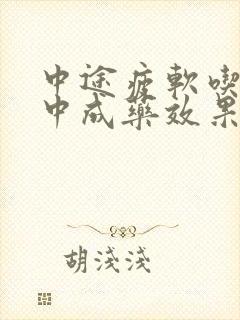 中途疲軟喫
中成藥效果
胡淺淺